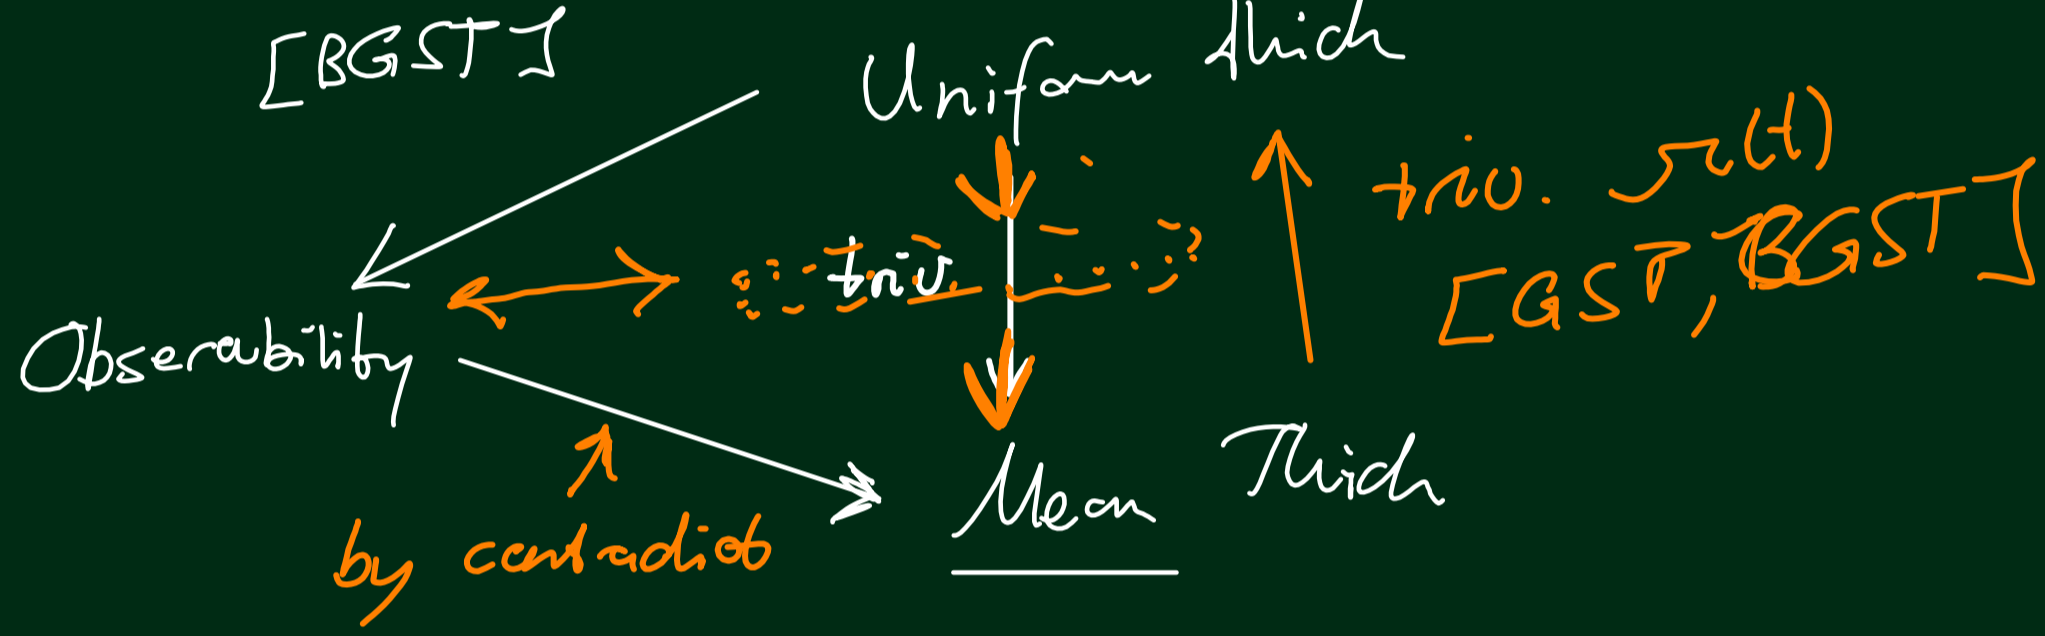 [BGST]
Uniform thick
triv. Ω(t)
[GST, BGST]
triv.
Obserability
Mean Thick
by contradict